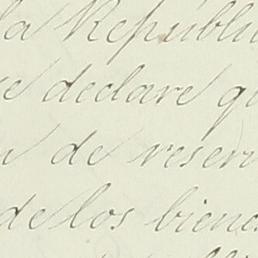 la Repúbli
se declare qu
de reserv
de los biene